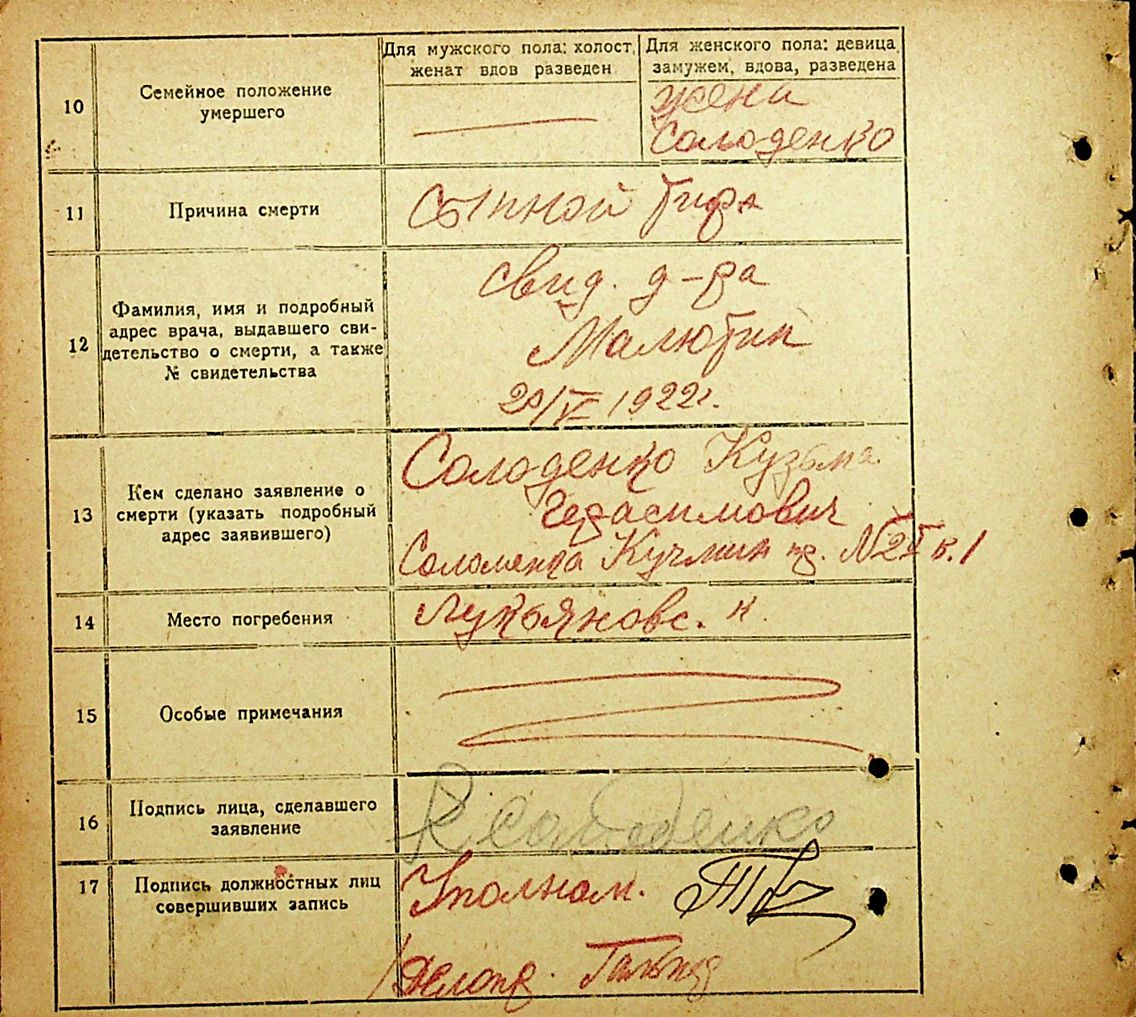 Для мужского пола: холост, женат вдов разведен
Для женского пола: девица, замужем, вдова, разведена
10
Семейное положение
умершего
жена
Солоденко
11
Причина смерти
Сыпной тиф
12
Фамилия, имя и подробный
адрес врача, выдавшего сви-
детельство о смерти, а также
№ свидетельства
свид. д-ра
Малютин
20/V 1922г.
13
Кем сделано заявление о
смерти (указать подробный
адрес заявившего)
Солоденко Кузьма
Герасимович
Соломенка Кучмин пр. №
14
Место погребения
Лукьяновс. к.
15
Особые примечания
16
Подпись лица, сделавшего
заявление
К Солоденко
17
Подпись должностных лиц
совершивших запись
Уполном.
Делопр.